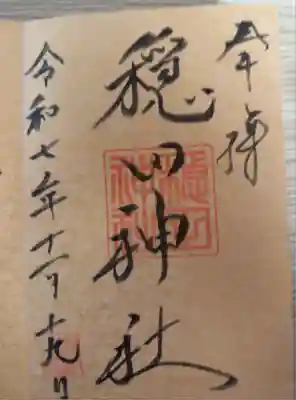 奉拝
穏田神社
令和七年十一月十九日